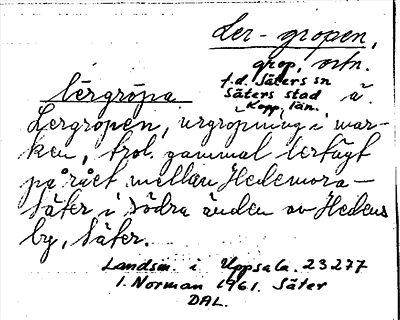 Ler-gropen,
grop, ortn.
f.d. Säters sn
Säters stad
i Kopp. län.
lèrgròpa
Lergropen, urgröpning i mar-
ken, trol. gammal lertägt
på rået mellan Hedemora-
Säter i södra änden av Hedens
by, Säter.
Landsm. i Uppsala. 23277
I. Norman 1961. Säter
DAL.